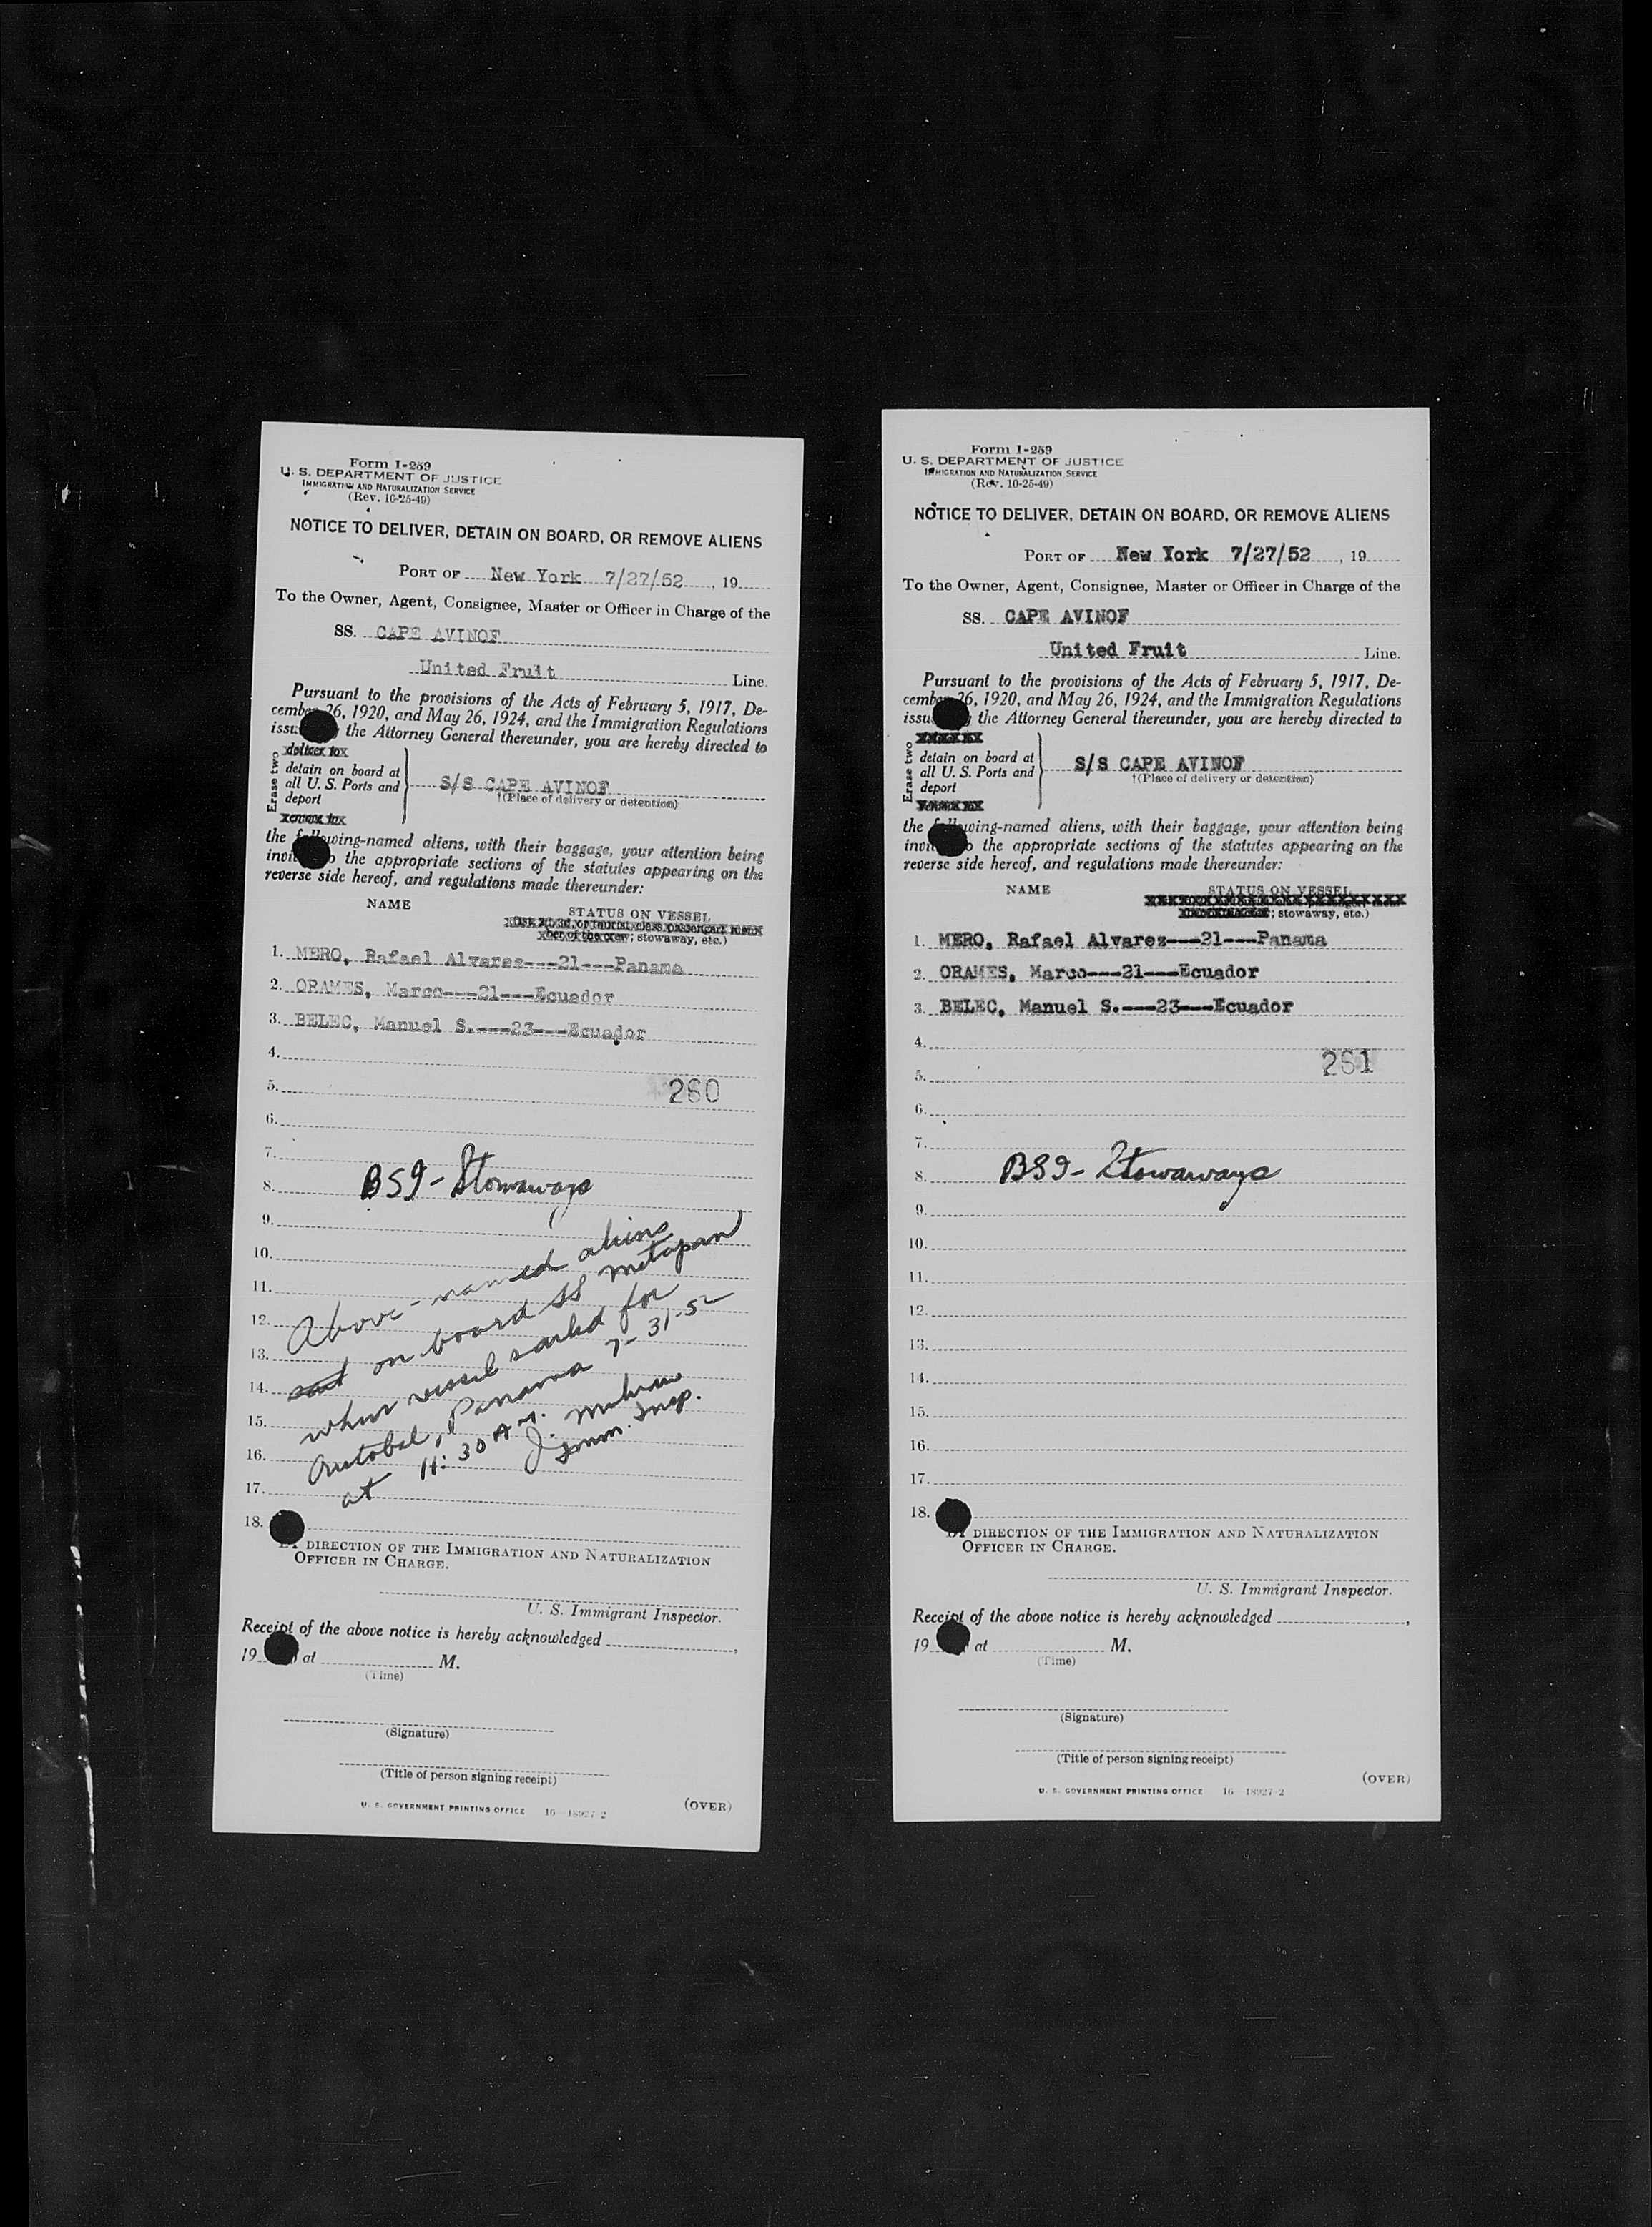 Form I-259
U. S. DEPARTMENT OF JUSTICE
IMMIGRATION AND NATURALIZATION SERVICE
(Rev. 10-25-49)
NOTICE TO DELIVER, DETAIN ON BOARD, OR REMOVE ALIENS
PORT OF New York 7/27/52, 19
To the Owner, Agent, Consignee, Master or Officer in Charge of the
SS. CAPE AVINOF
United Fruit Line.
Pursuant to the provisions of the Acts of February 5, 1917, De-
cember 26, 1920, and May 26, 1924, and the Immigration Regulations
issu the Attorney General thereunder, you are hereby directed to
Erase two
deliver to
detain on board at
all U. S. Ports and
deport
remove to
S/S CAPE AVINOF
†(Place of delivery or detention)
the following-named aliens, with their baggage, your attention being
invi the appropriate sections of the statutes appearing on the
reverse side hereof, and regulations made thereunder:
NAME
STATUS ON VESSEL
ber of the crew; stowaway, etc.)
1. MERO, Rafael Alvarez---21---Panama
2. ORAMES, Marco---21---Ecuador
3. BELEC, Manuel S.---23---Ecuador
4.
5. 260
6.
7.
8. BSI - Stowaways
9.
10.
11.
12.
13.
14.
15.
16.
17.
18.
Above-named aliens
on board SS Metapan
when vessel sailed for
Cristobal, Panama 7-31-52
at 11:30 AM.
J.
Imm. Insp.
DIRECTION OF THE IMMIGRATION AND NATURALIZATION
OFFICER IN CHARGE.
U. S. Immigrant Inspector.
Receipt of the above notice is hereby acknowledged ,
19 at M.
(Time)
(Signature)
(Title of person signing receipt)
U. S. GOVERNMENT PRINTING OFFICE 16—18927-2
(OVER)
Form I-259
U. S. DEPARTMENT OF JUSTICE
IMMIGRATION AND NATURALIZATION SERVICE
(Rev. 10-25-49)
NOTICE TO DELIVER, DETAIN ON BOARD, OR REMOVE ALIENS
PORT OF New York 7/27/52, 19
To the Owner, Agent, Consignee, Master or Officer in Charge of the
SS. CAPE AVINOF
United Fruit Line.
Pursuant to the provisions of the Acts of February 5, 1917, De-
cember 26, 1920, and May 26, 1924, and the Immigration Regulations
issu the Attorney General thereunder, you are hereby directed to
Erase two
detain on board at
all U. S. Ports and
deport
S/S CAPE AVINOF
†(Place of delivery or detention)
the following-named aliens, with their baggage, your attention being
invi the appropriate sections of the statutes appearing on the
reverse side hereof, and regulations made thereunder:
NAME
STATUS ON VESSEL
; stowaway, etc.)
1. MERO, Rafael Alvarez---21---Panama
2. ORAMES, Marco---21---Ecuador
3. BELEC, Manuel S.---23---Ecuador
4.
5. 261
6.
7.
8. BSI - Stowaways
9.
10.
11.
12.
13.
14.
15.
16.
17.
18.
DIRECTION OF THE IMMIGRATION AND NATURALIZATION
OFFICER IN CHARGE.
U. S. Immigrant Inspector.
Receipt of the above notice is hereby acknowledged ,
19 at M.
(Time)
(Signature)
(Title of person signing receipt)
U. S. GOVERNMENT PRINTING OFFICE 16—18927-2
(OVER)